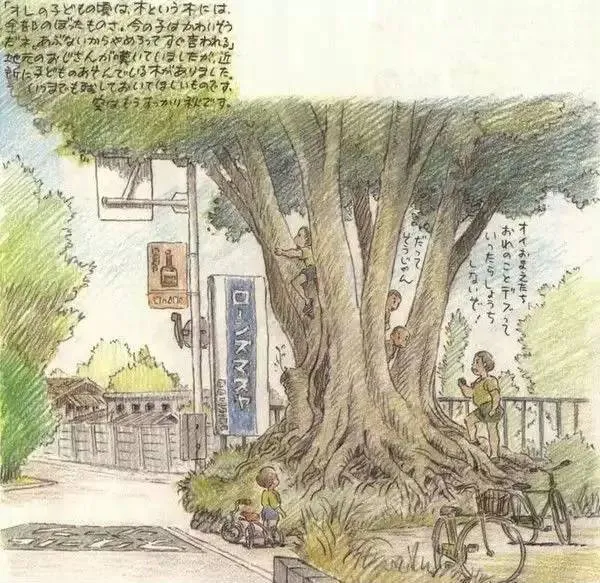 「オレの子どもの頃は、木という木には
全部のぼったものさ。今の子はかわいそう
だネ。あぶないからやめろってすぐ言われる」
地元のおじさんが嘆いていましたが、近
所に子どものあそんでいる木がありました。
いつまでも残しておいてほしいものです。
空はもうすっかり秋です。
オイおまえたち
おれのことデブって
いったらしょうち
しないぞ!
だって
そうじゃん
ローンズマスヤ